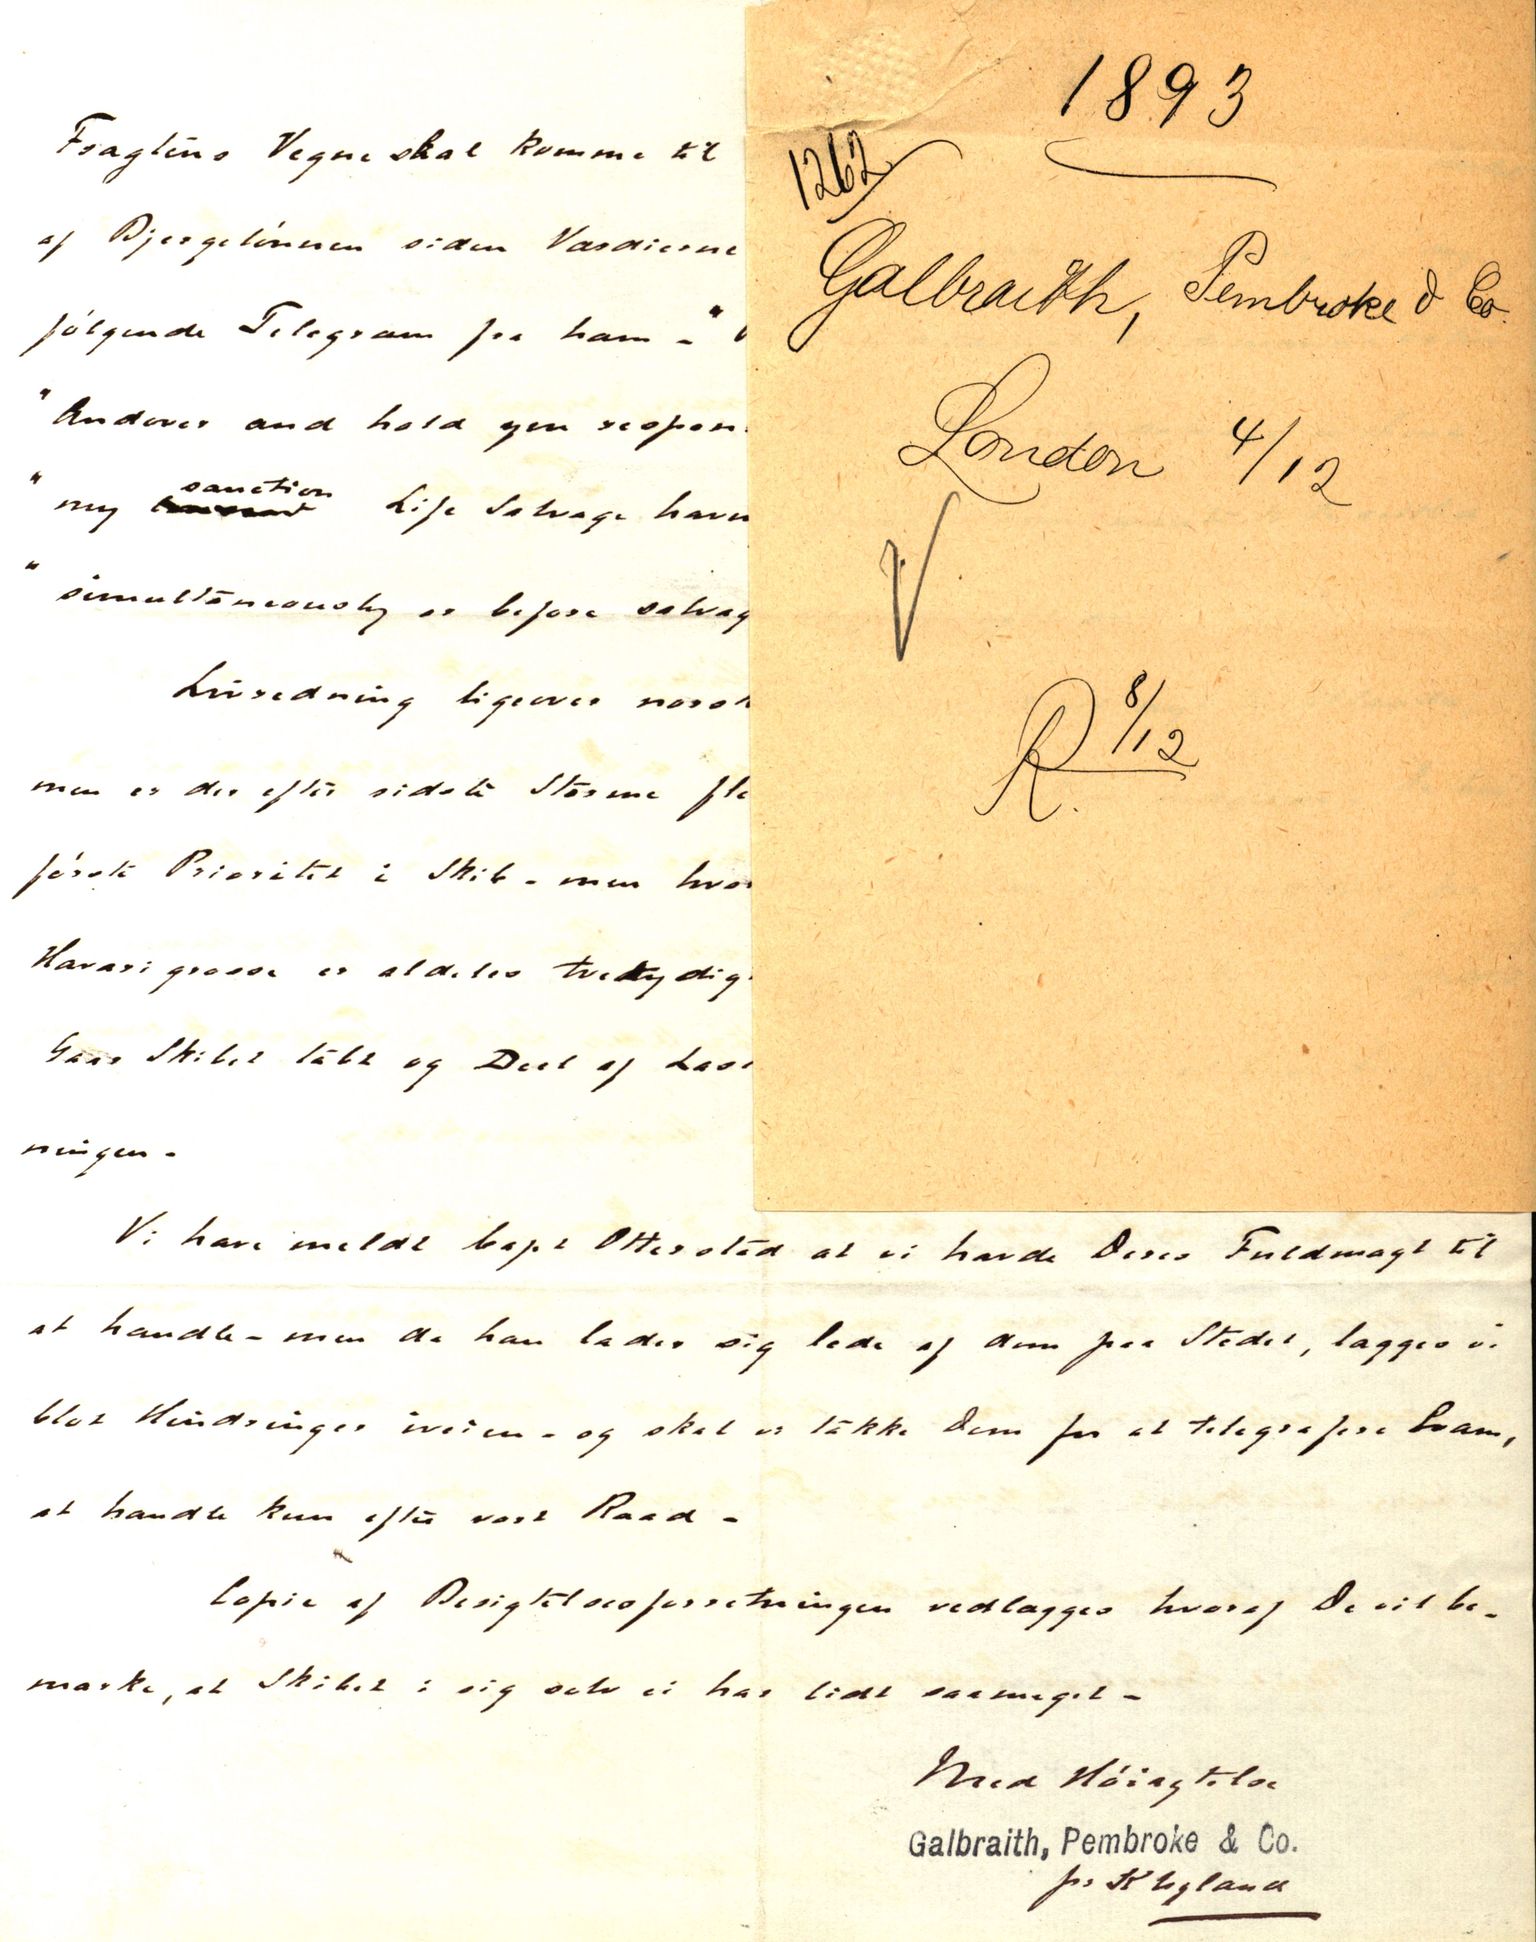 1893
1262
Galbraith, Pembroke & Co.
London 4/12
R. 8/12
Fragtens Vegne skal komme til
af Bjergelönnen siden Værdierne
følgende Telegram fra ham - "
"Andover and hold you respon
"my sanction Life Salvage havn
"simultaneously or before salvag
Livredning ligeover norsk
men er der efter sidste Storme fle
første Prioritet i Skib - men hvor
Havari grosse er aldeles tvetydig
Gaar Skibet tabt og Deel af Las
ningen -
Vi have meldt Capt Otterstad at vi havde Deres Fuldmagt til
at handle - men da han lader sig lede af dem paa Stedet, lægges vi
blot Hindringer iveien - og skal vi takke Dem for at telegrafere Cram,
at handle kun efter vort Raad -
Copie af Besigtelsesforretningen vedlægges hvoraf De vil be-
mærke, at Skibet i sig selv ei har lidt saameget -
Med Höiagtelse
Galbraith, Pembroke & Co.
pr K Ugland